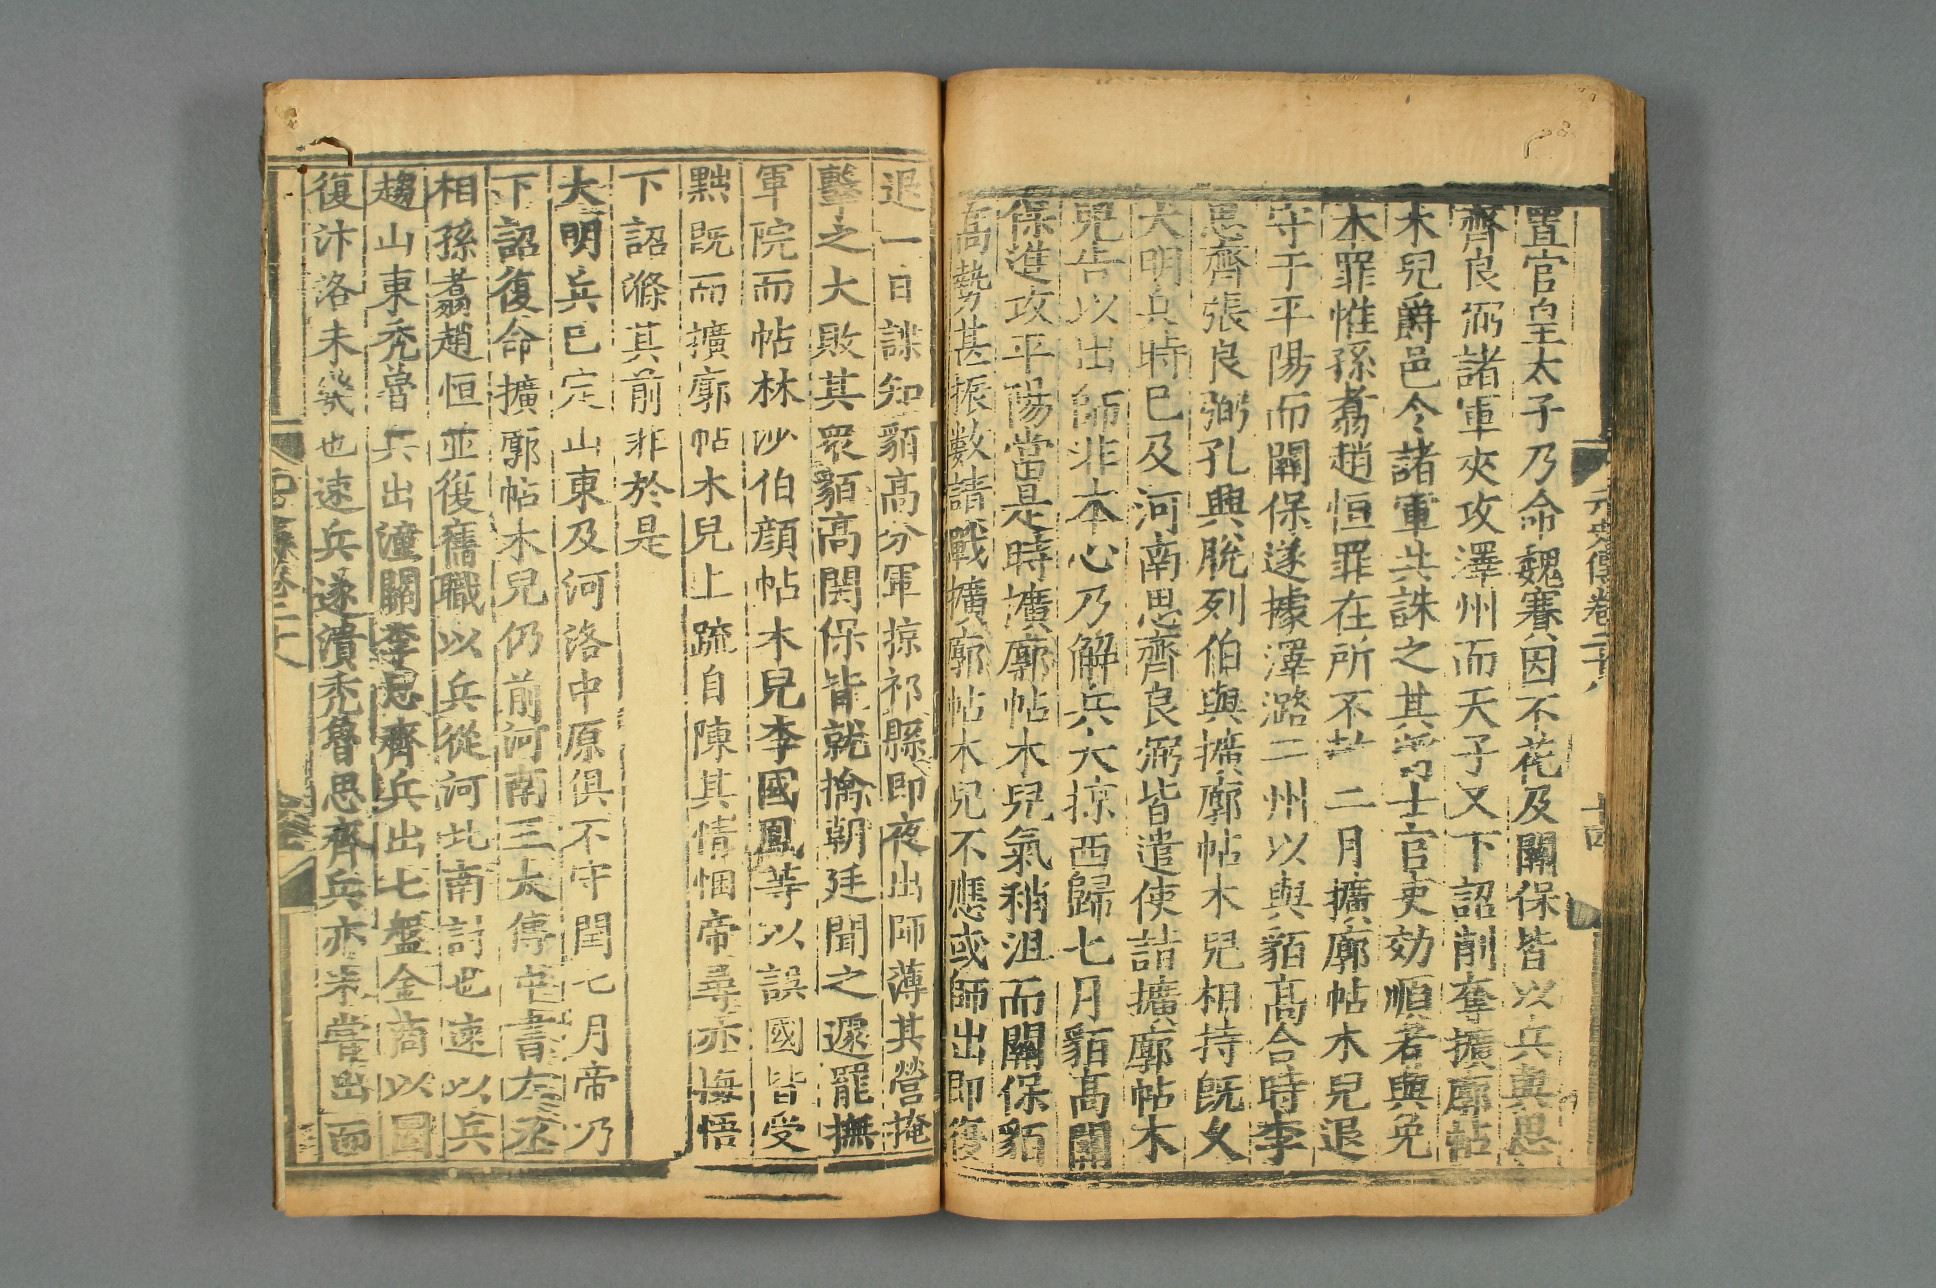 置官皇太子乃命魏賽因不花及關保皆以兵與思
齊良弼諸軍夾攻澤州而天子又下詔削奪擴廓帖
木兒爵邑令諸軍共誅之其將士官吏効順者與免
本罪惟孫翥趙恒罪在所不赦二月擴廓帖木兒退
守于平陽而關保遂據澤潞二州以與貊高合時李
思齊張良弼孔興脫列伯與擴廓帖木兒相持旣久
大明兵時已及河南思齊良弼皆遣使詣擴廓帖木
兒告以出師非本心乃解兵大掠西歸七月貊高關
保進攻平陽當是時擴廓帖木兒氣稍沮而關保貊
高勢甚振數請戰擴廓帖木兒不應或師出即復
退一日諜知貊高分軍掠祁縣即夜出師薄其營掩
擊之大敗其衆貊高関保皆就擒朝廷聞之遽罷撫
軍院而帖林沙伯顔帖木兒李國鳳等以誤國皆受
黜既而擴廓帖木兒上疏自陳其情悃帝尋亦悔悟
下詔滌其前非於是
大明兵已定山東及河洛中原俱不守閏七月帝乃
下詔復命擴廓帖木兒仍前河南王太傅中書左丞
相孫翥趙恒並復舊職以兵從河北南討也速以兵
趨山東禿魯兵出潼關李思齊兵出七盤金商以圖
復汴洛未幾也速兵遂潰禿魯思齊兵亦未嘗出而
元史傳卷二十八
十四